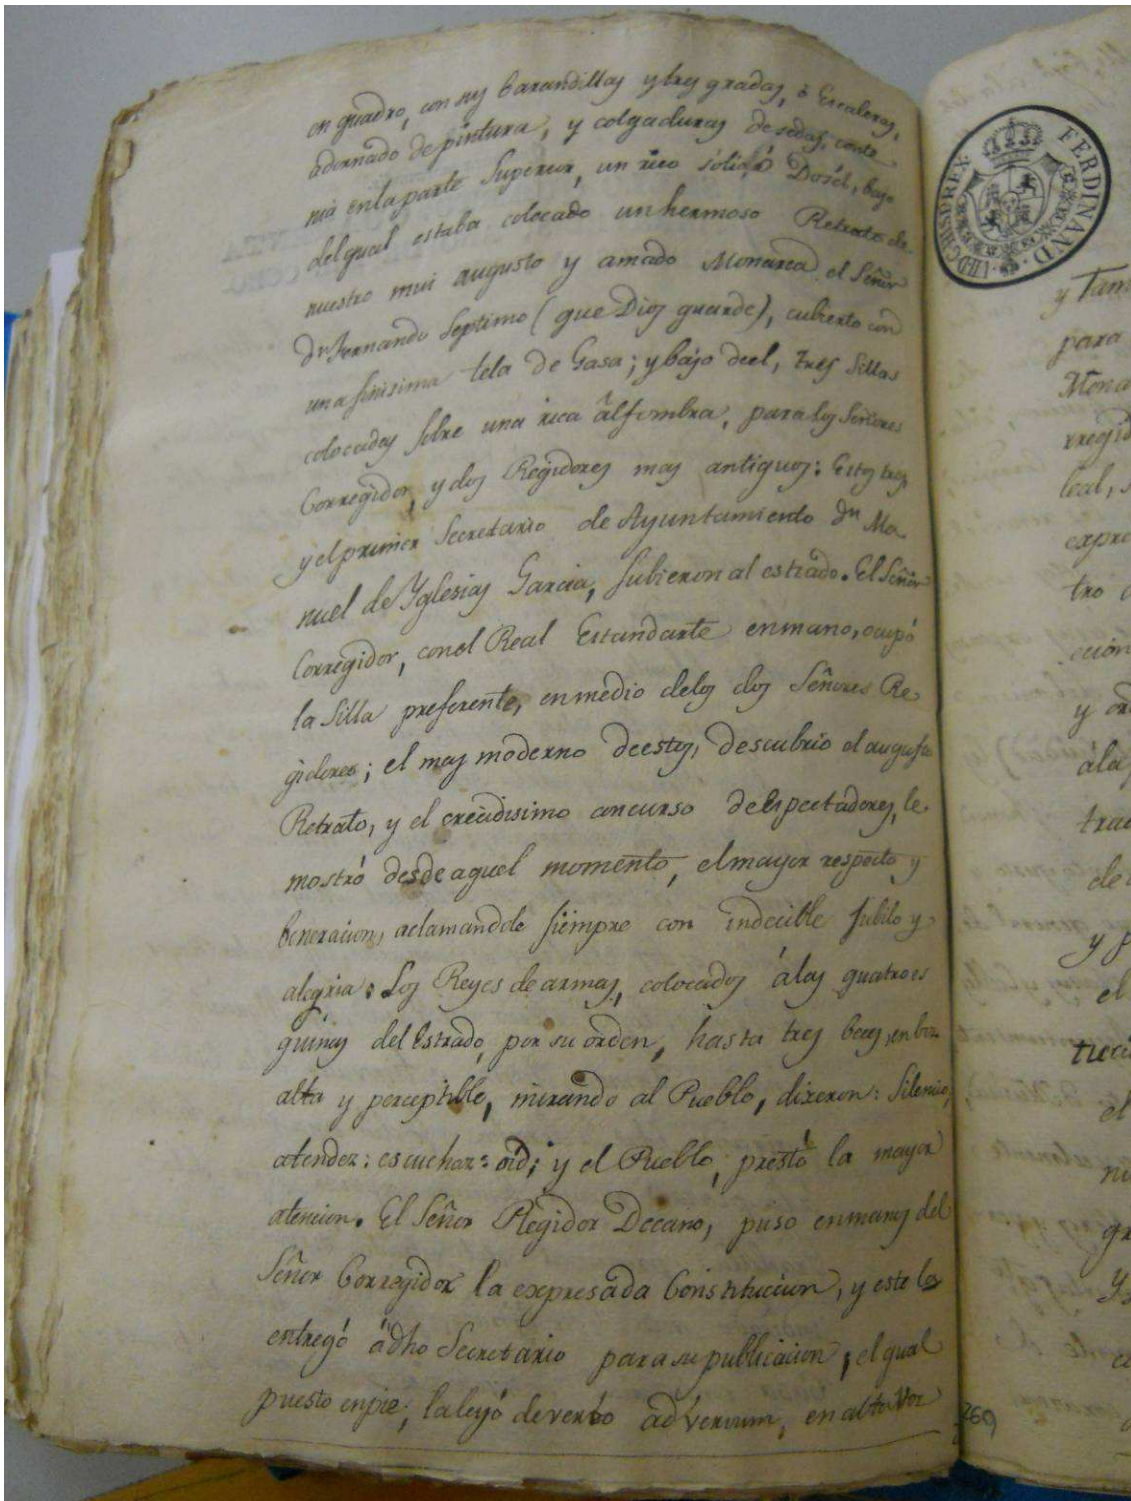 en quadro, con sus barandillas y tres gradas, ó Escaleras,
adornado de pintura, y colgaduras de sedas, conte
nia enla parte Superior, un rico sólio ó Dosél, bajo
del qual estaba colocado un hermoso Retrato de
nuestro mui augusto y amado Monarca el Señor
Dn Fernando Septimo (que Dios guarde), cubierto con
una finisima tela de Gasa; y bajo deel, tres Sillas
colocadas sobre una rica alfombra, para los Señores
Corregidor, y dos Regidores mas antiguos: Estos tres,
y el primer Secretario de Ayuntamiento Dn Ma
nuel de Yglesias Garcia, subieron al estrado. El Señor
Corregidor, con el Real Estandarte en mano, ocupó
la Silla preferente, en medio delos dos Señores Re
gidores; el mas moderno deestos, descubrio el augusto
Retrato, y el crecidisimo concurso de Espectadores, le
mostró desde aquel momento, el mayor respeto y
beneracion, aclamandole siempre con indecible Jubilo y
alegria. Los Reyes de armas, colocados álas quatro es
quinas del Estrado, por su orden, hasta tres beces, en boz
alta y perceptible, mirando al Pueblo, dixeron: Silencio,
atender: escuchar: oid; y el Pueblo, prestó la mayor
atencion. El Señor Regidor Decano, puso en manos del
Señor Corregidor la expresada Constitucion, y este la
entregó á dho Secretario para su publicacion, el qual
puesto en pie, la leyó de verbo ad verbum, en alta Voz
FERDINAND. VII. D. G. HISP. REX.
y Tam
para
Mona
rregid
leal,
expre
tro
ccion
y or
ála
trac
de
y
el
el
ni
gr
269